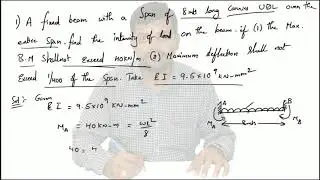 1) A fixed beam with a Span of 8mts long Carries UDL over the
entire Span. find the intensity of load on the beam. if (1) the Max.
B.M Shall not Exceed 40KN/m. (2) Maximum deflection Shall not
Exceed 1/400 of the Span. Take EI = 9.5x10⁹ KN-mm²
Sol: Given
EI = 9.5x10⁹ KN-mm²
M_A = 40KN-m = wL²/8
40 =
A B
M_A 8mts M_B